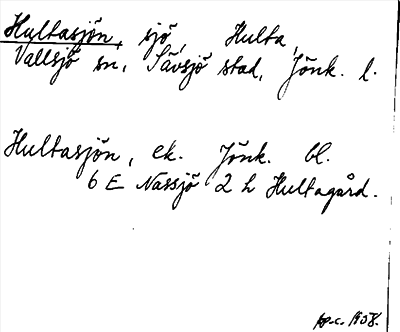 Hultasjön, sjö, Hulta,
Vallsjö sn, Sävsjö stad, Jönk. l.
Hultasjön, ek. Jönk. bl.
6 E Nässjö 2 h Hultagård.
1908.